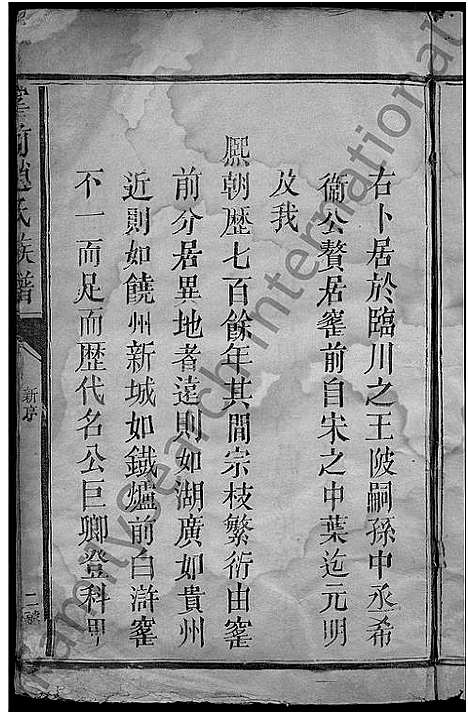 右卜居於臨川之王陂嗣孫中丞希
衛公贅居窰前自宋之中葉迄元明
及我
熈朝歷七百餘年其間宗枝繁衍由窰
前分居異地者遠則如湖廣如貴州
近則如饒州新城如鐵爐前白滸窰
不一而足而歷代名公巨卿登科甲
窰前趙氏族譜
新序
二
FamilySearch International